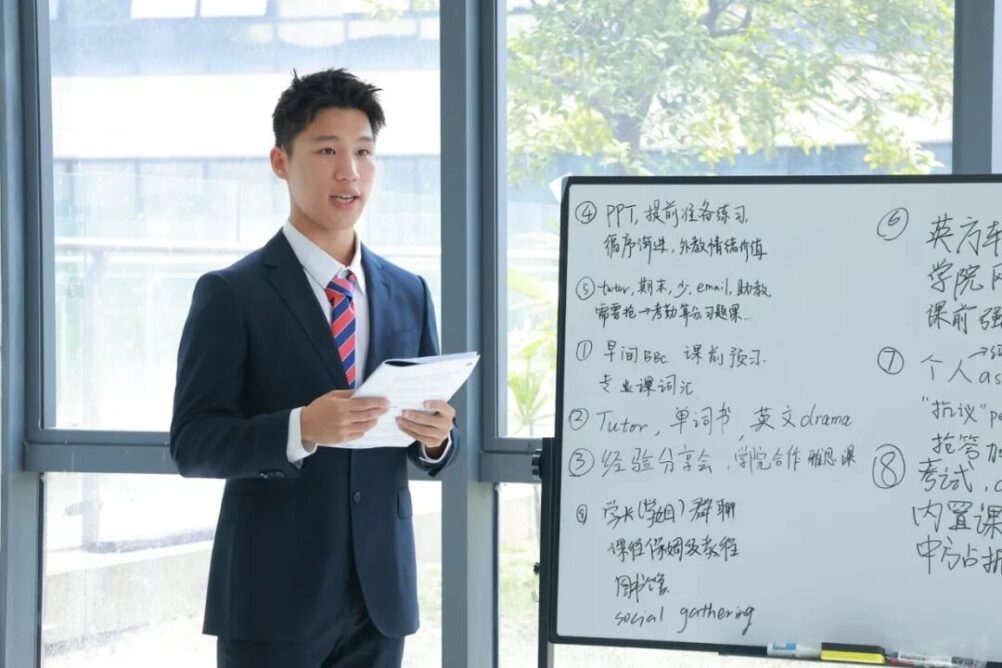 ④ PPT, 提前准备练习
循序渐进, 外教情绪价值
⑤ tutor, 期末, 少, email, 助教
需要抢→考勤算分习题课...
① 早间BBC. 课前预习.
专业课词汇
② Tutor, 单词书, 英文drama
③ 经验分享会, 学院合作雅思课
⑨ 学长(学姐)群聊
课程保姆级教程
图书馆
social gathering
⑥ 英方车
学院
课前强
⑦ 个人as
"抗议"pe
抢答加
⑧ 考试, c
内置课
中方占折